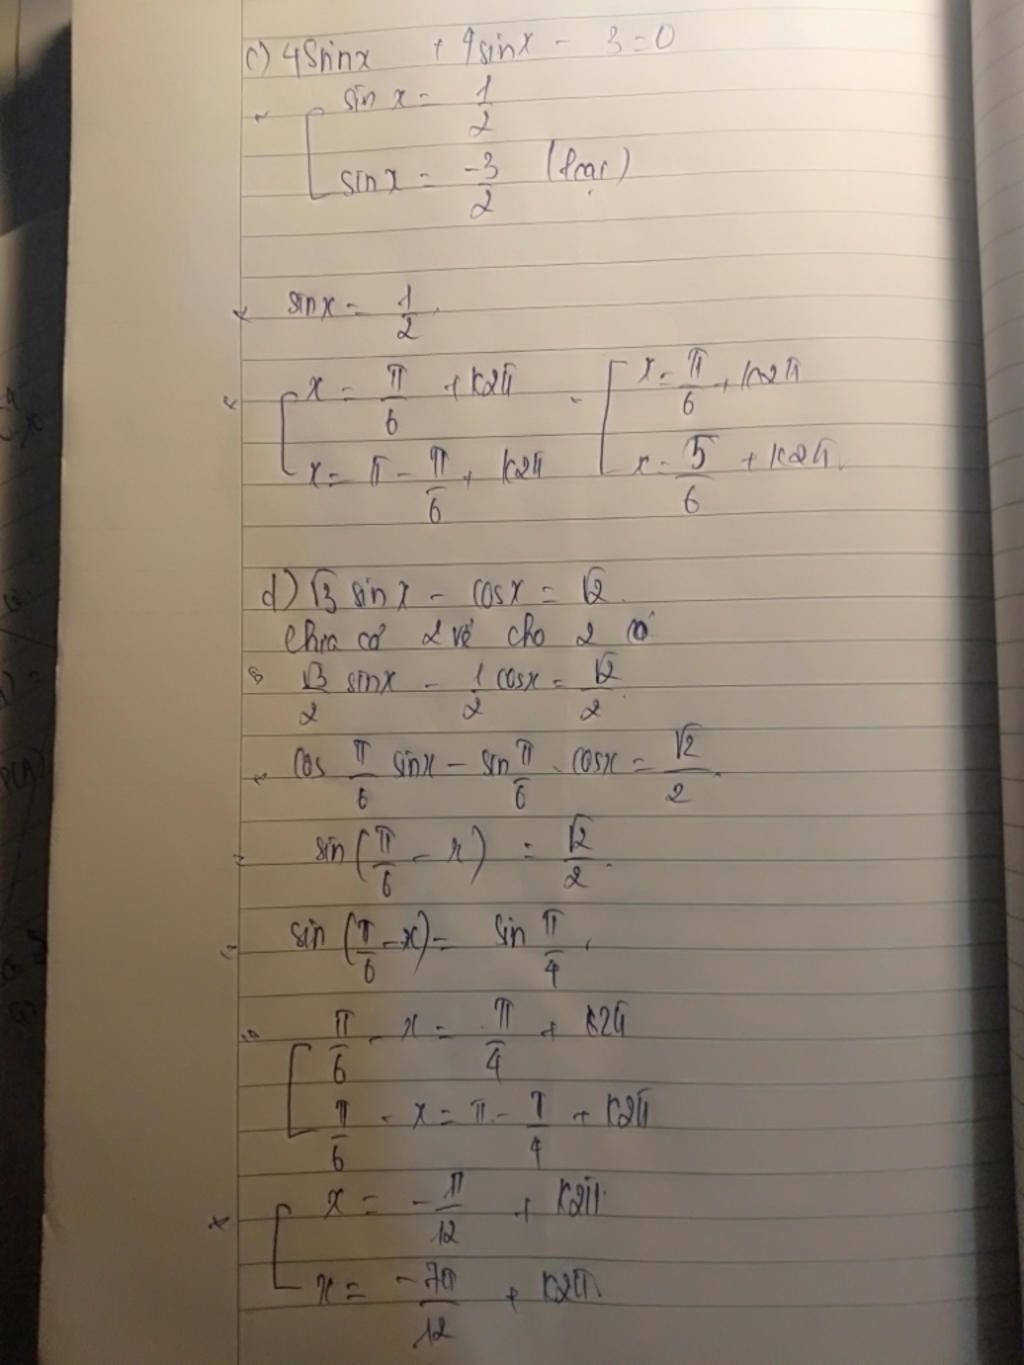 c) 4sinx + 4sinx - 3 = 0
sin x = 1/2
sin x = -3/2 (loại)
sin x = 1/2
x = π/6 + k2π
x = π/6 + k2π
x = π - π/6 + k2π
x = 5/6 + k2π
d) √3 sin x - cos x = √2
Chia cả 2 vế cho 2
√3/2 sinx - 1/2 cosx = √2/2
cos π/6 sinx - sin π/6 . cosx = √2/2
sin (π/6 - x) = √2/2
sin (π/6 - x) = sin π/4
π/6 - x = π/4 + k2π
π/6 - x = π - π/4 + k2π
x = -π/12 + k2π
x = -7π/12 + k2π